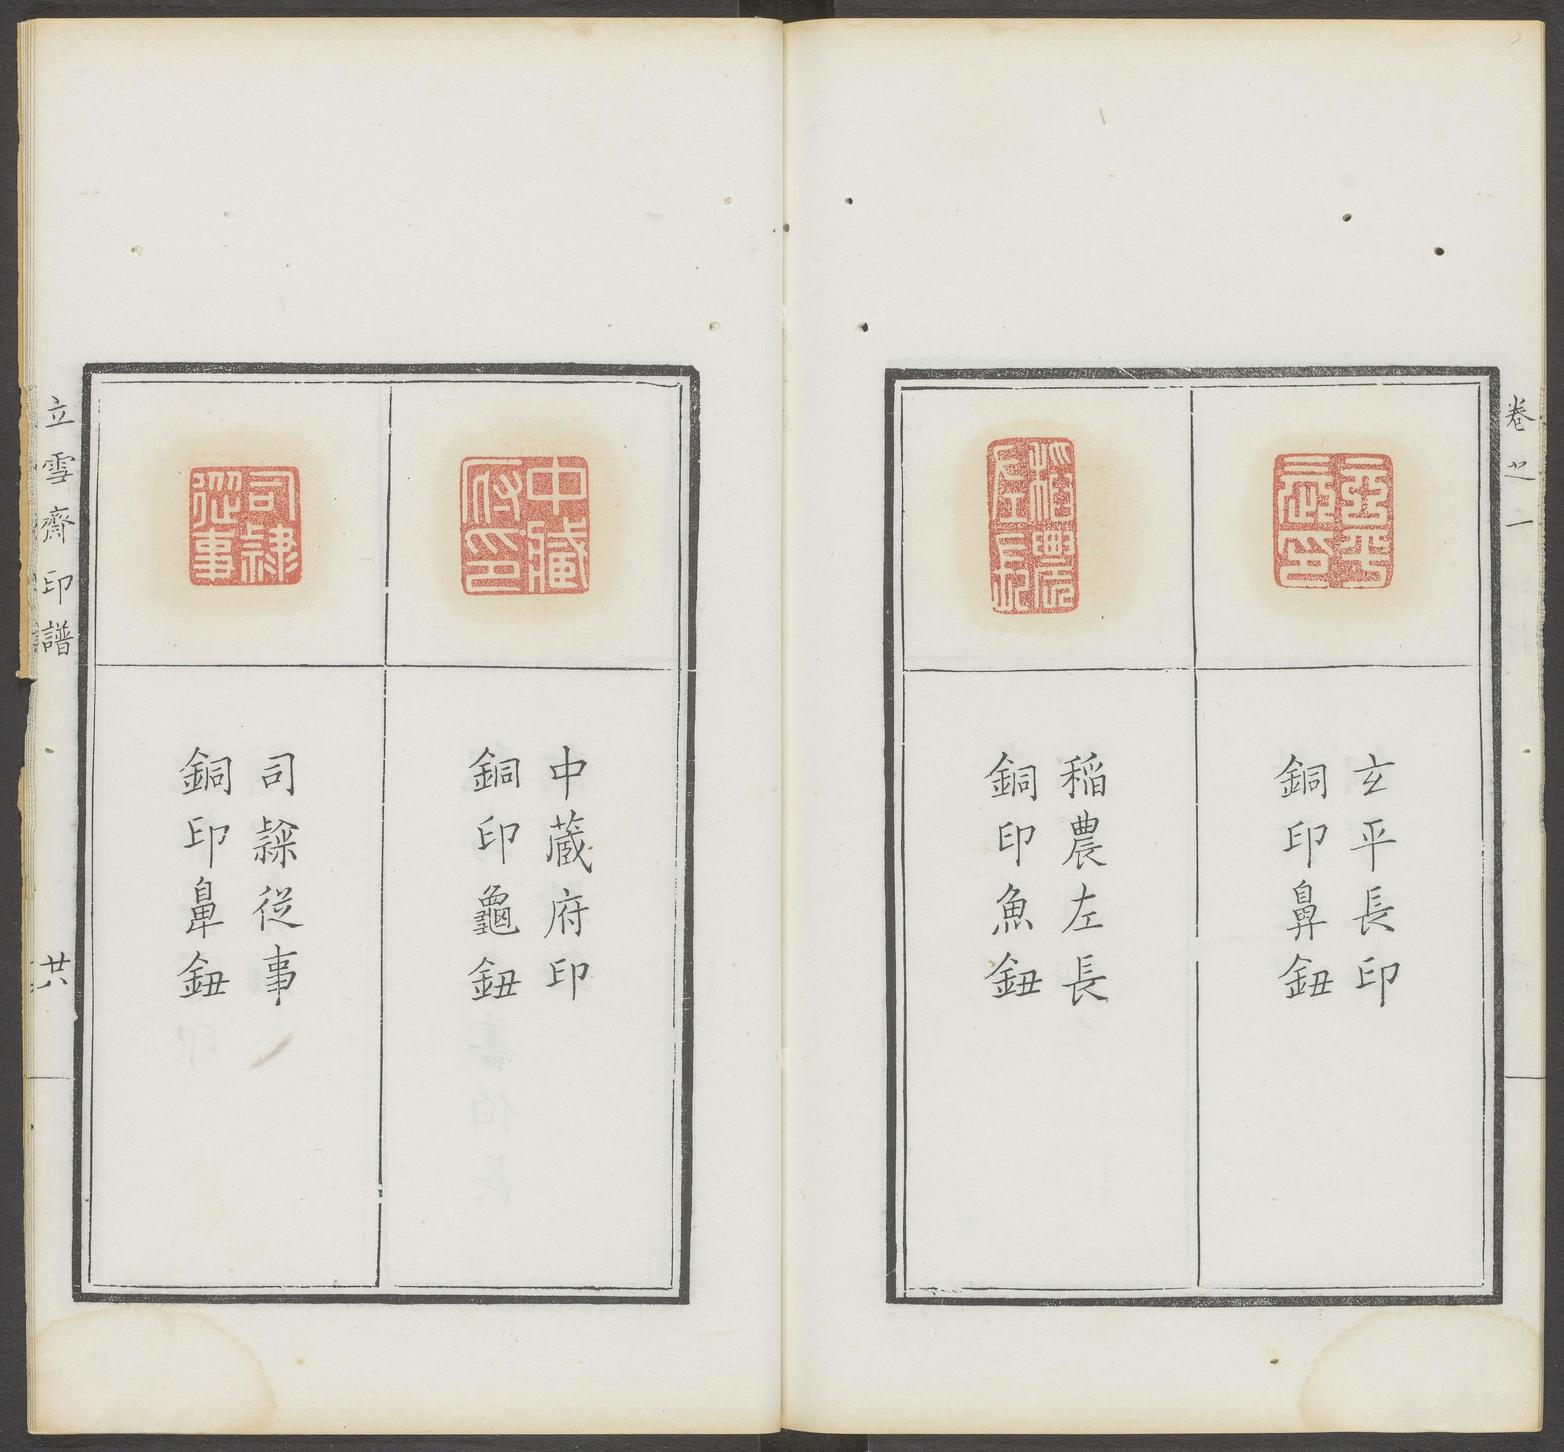 卷之一
玄平長印
銅印鼻鈕
稲農左長
銅印魚鈕
中蔵府印
銅印龜鈕
司隷從事
銅印鼻鈕
立雪齋印譜
廿六
中藏
府印
司隸
從事